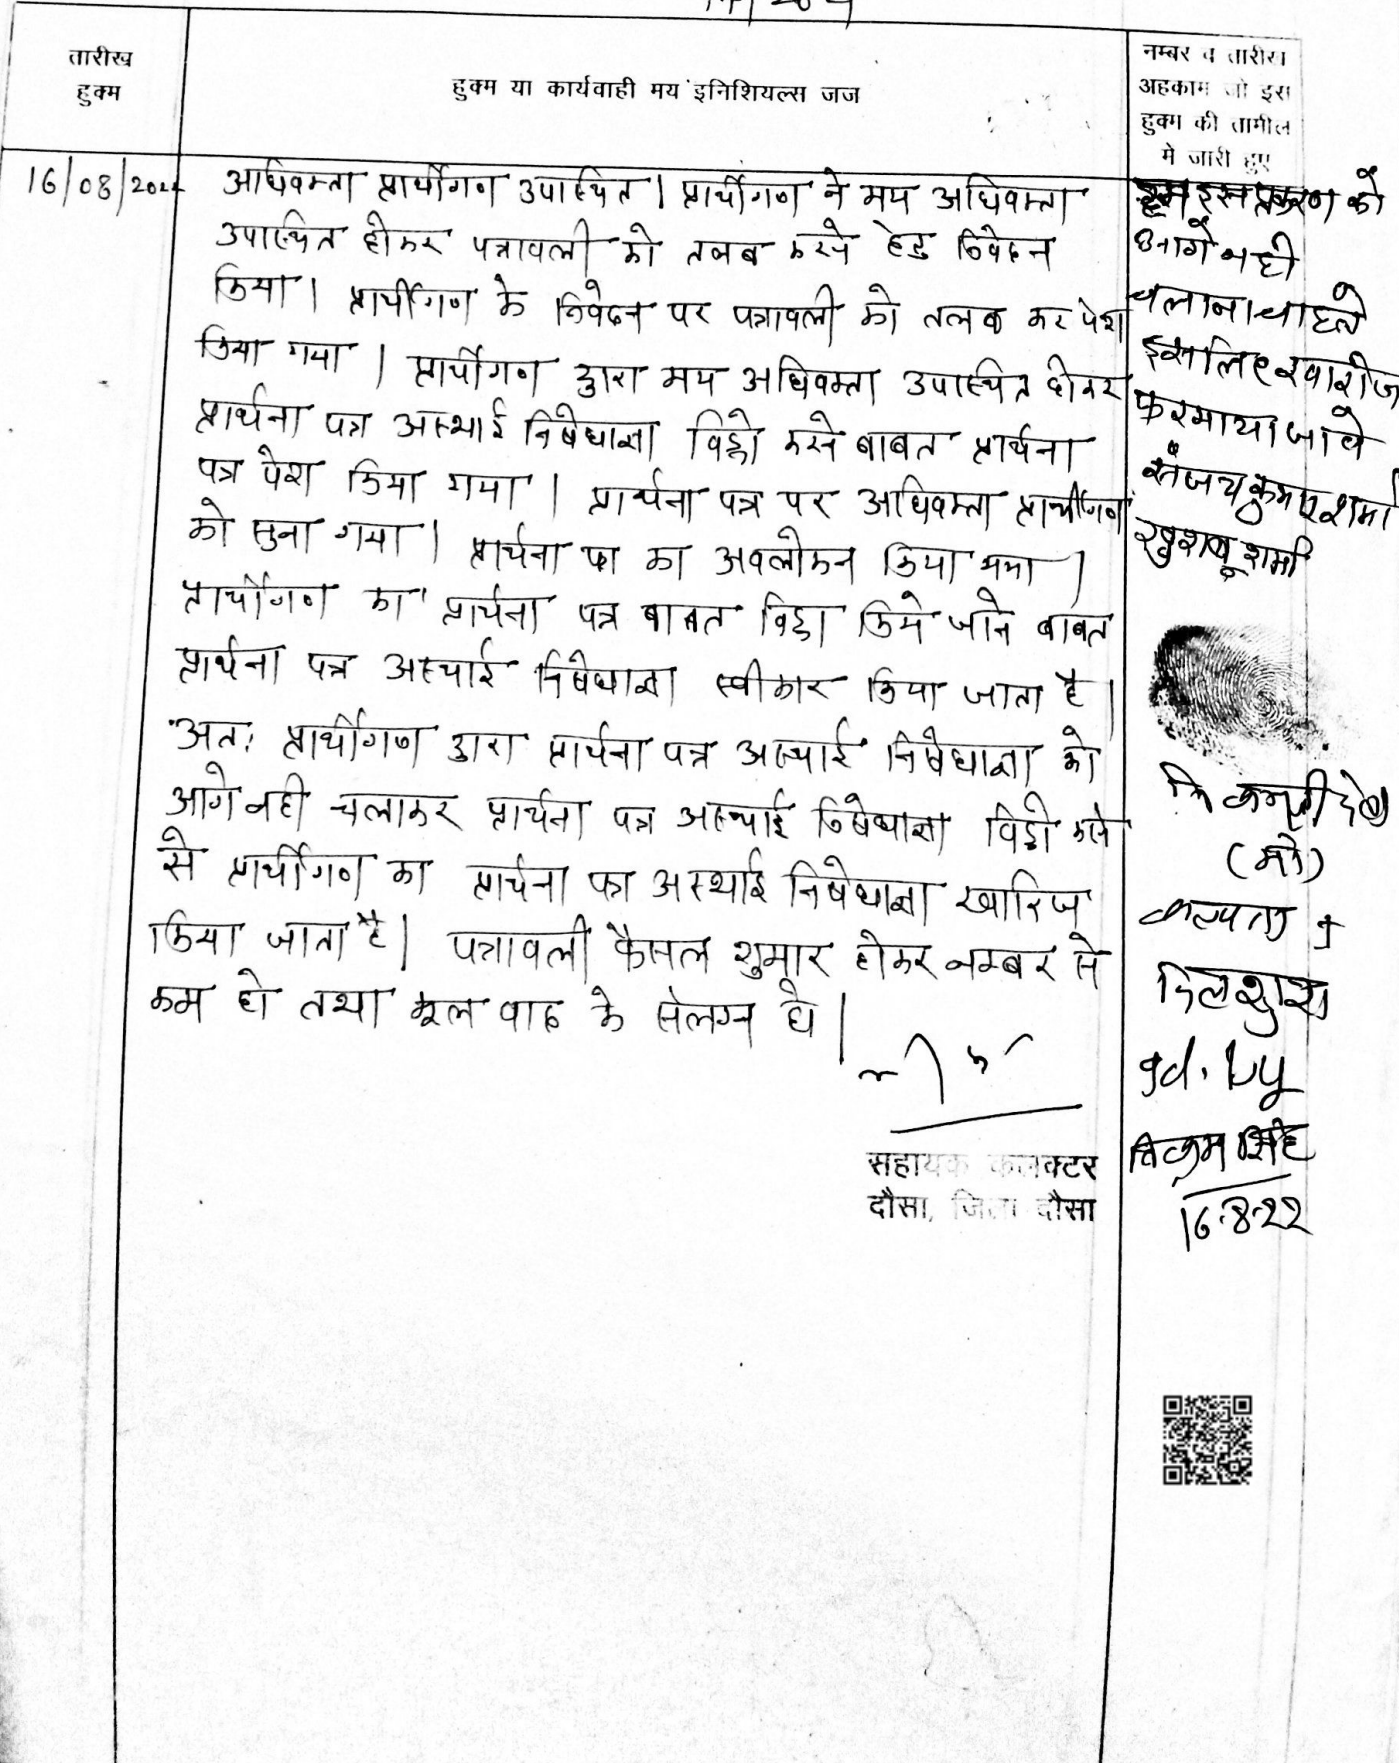 तारीख
हुक्म
हुक्म या कार्यवाही मय इनिशियल्स जज
नम्बर व तारीख
अहकाम जो इस
हुक्म की तामील
मे जारी हुए
16/08/2022
अधिवक्ता प्रार्थीगण उपास्थित। प्रार्थीगण ने मय अधिवक्ता
उपास्थित होकर पत्रावली को तलब करने हेतु निवेदन
किया। प्रार्थीगण के निवेदन पर पत्रावली को तलब कर पेश
किया गया। प्रार्थीगण द्वारा मय अधिवक्ता उपास्थित होकर
प्रार्थना पत्र अस्थाई निषेधाज्ञा विड्रो करने बाबत प्रार्थना
पत्र पेश किया गया। प्रार्थना पत्र पर अधिवक्ता प्रार्थीगण
को सुना गया। प्रार्थना पत्र का अवलोकन किया गया।
प्रार्थीगण का प्रार्थना पत्र बाबत विड्रो किये जाने बाबत
प्रार्थना पत्र अस्थाई निषेधाज्ञा स्वीकार किया जाता है।
अतः प्रार्थीगण द्वारा प्रार्थना पत्र अस्थाई निषेधाज्ञा को
आगे नही चलाकर प्रार्थना पत्र अस्थाई निषेधाज्ञा विड्रो करने
से प्रार्थीगण का प्रार्थना पत्र अस्थाई निषेधाज्ञा खारिज
किया जाता है। पत्रावली फैसल शुमार होकर नम्बर से
कम हो तथा मूल वाद के संलग्न हो।
सहायक कलक्टर
दौसा, जिला दौसा
हम इस प्रकरण को
आगे नही
चलाना चाहते
इसलिए खारीज
फरमाया जावे
संजय कुमार शर्मा
खुशबू शर्मा
नि कमली देवी
(मो)
दिलखुश
Id. by
विक्रम सिंह
16-8-22